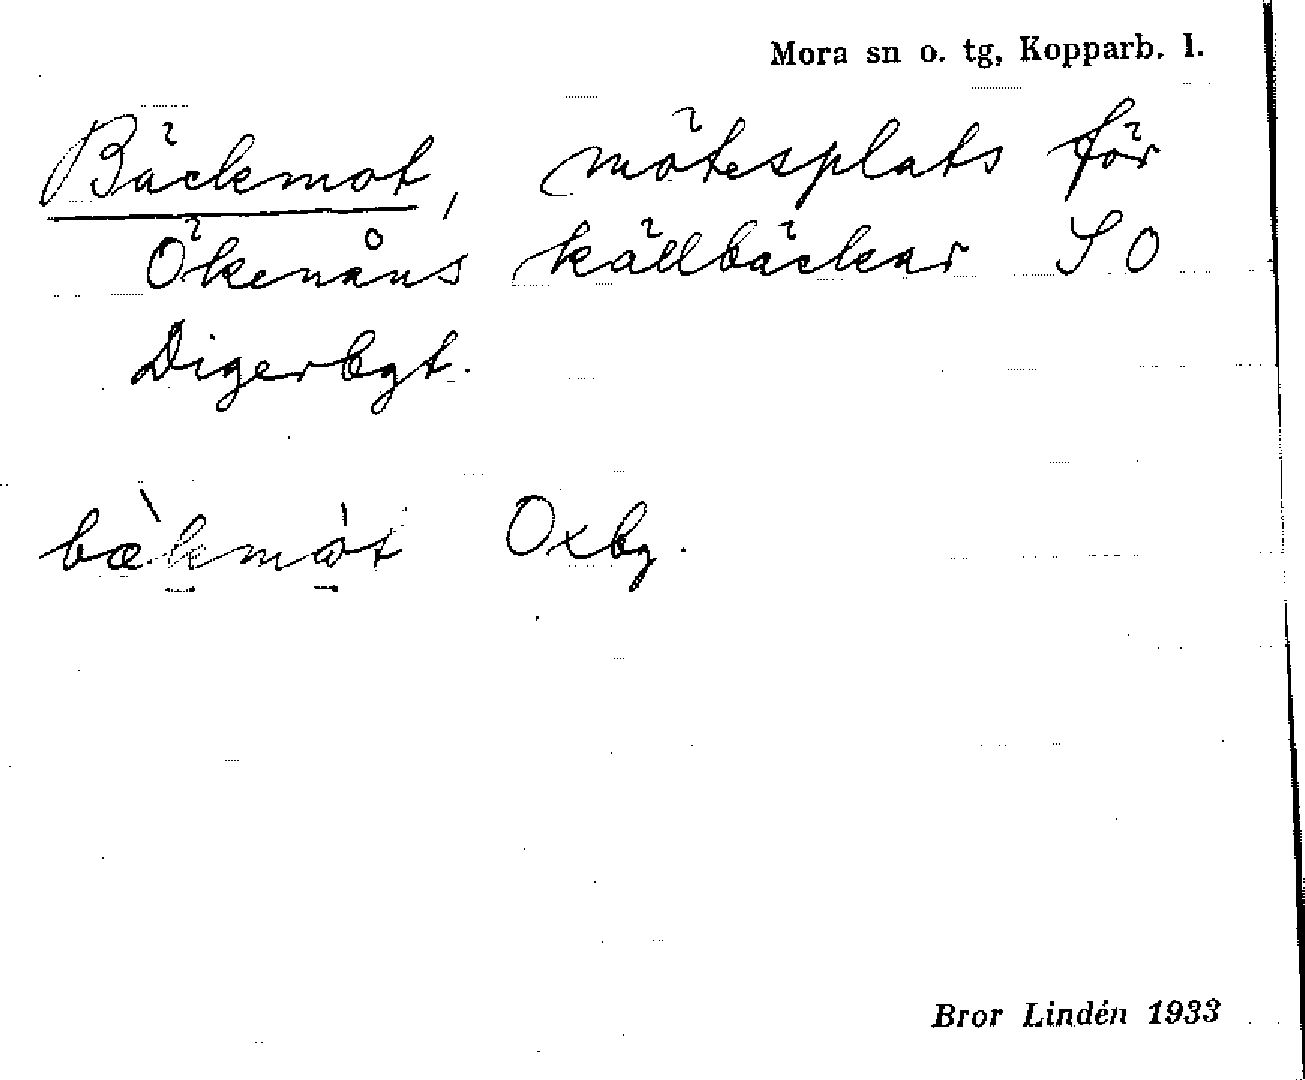 Mora sn o. tg, Kopparb. l.
Bäckmot, mötesplats för
Ökenåns källbäckar SO
Digerbgt.
bæ̀kmòt Oxbg.
Bror Lindén 1933